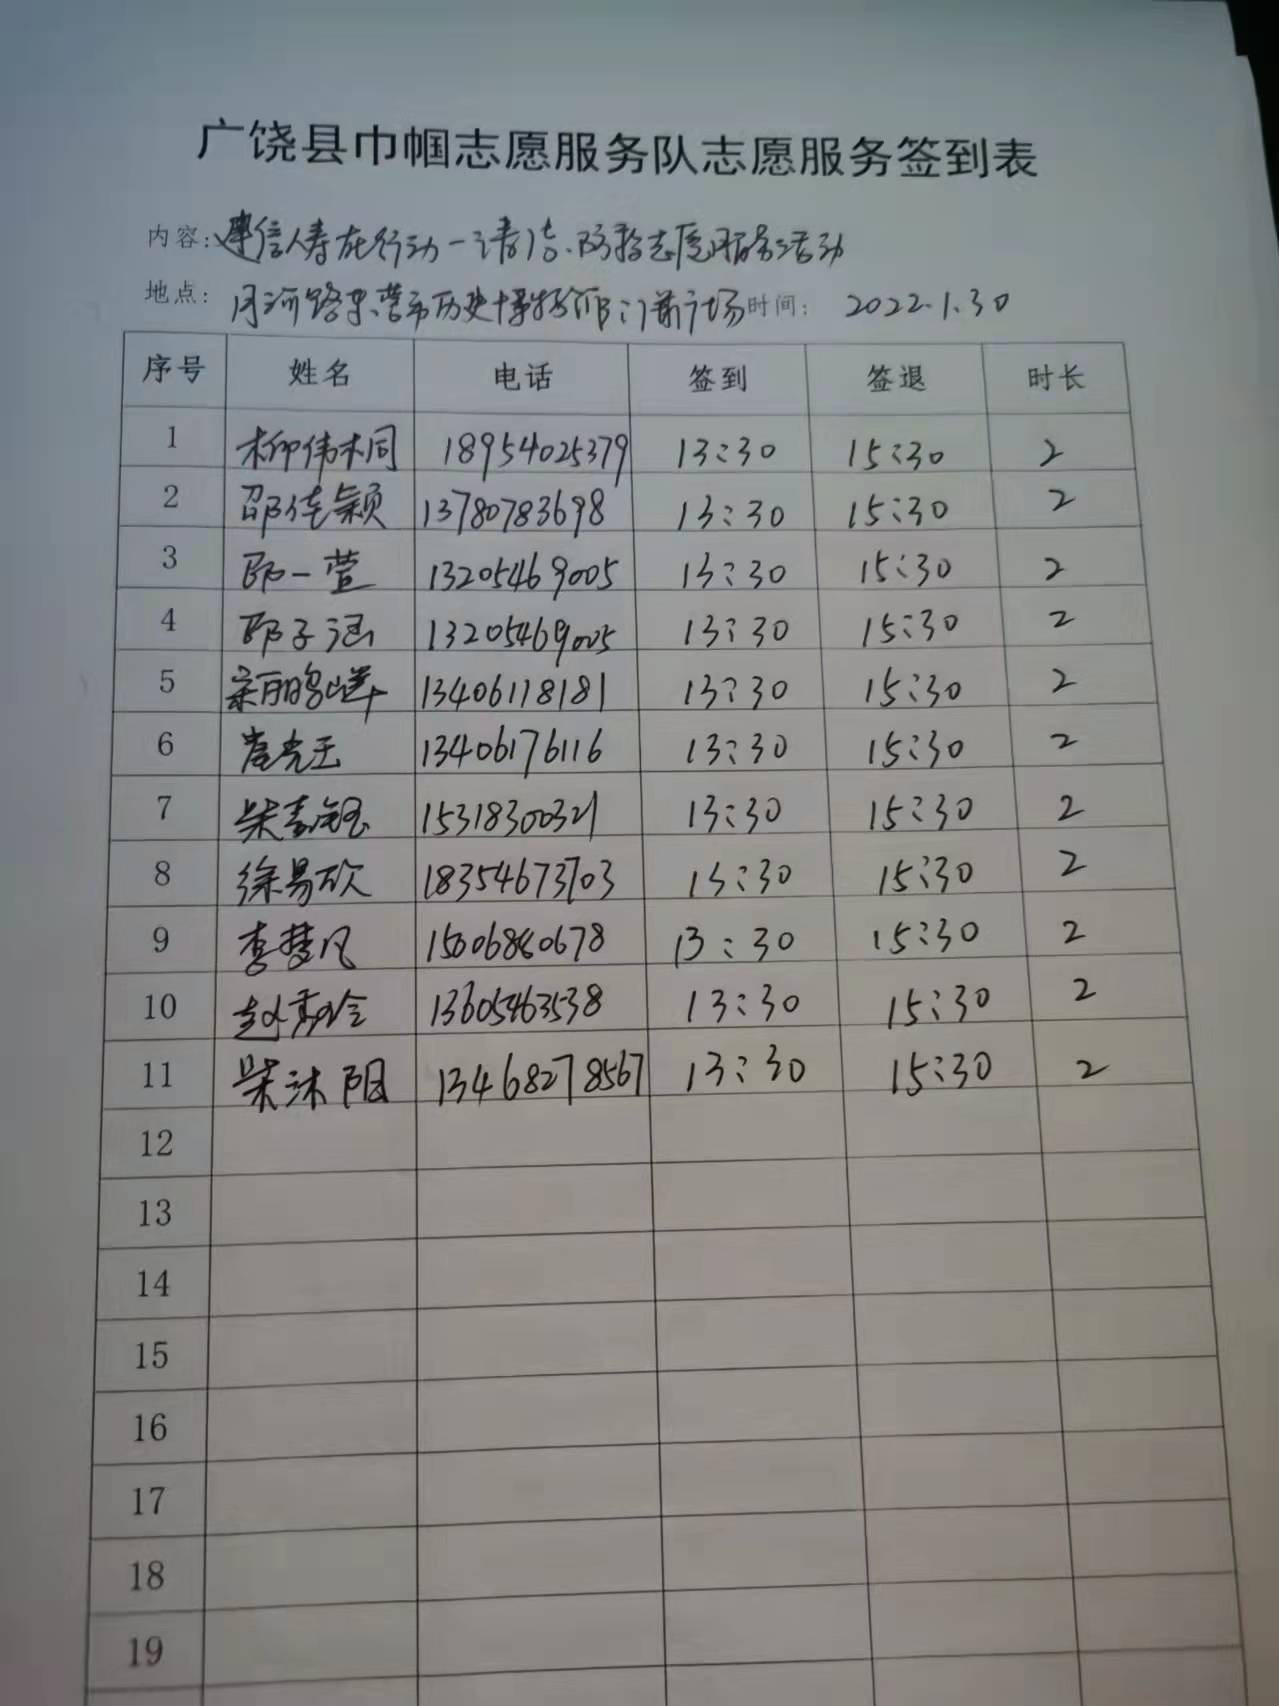 广饶县巾帼志愿服务队志愿服务签到表
内容：建信人寿在行动一清洁、防疫志愿服务活动
地点：月河路东营市历史博物馆门前广场 时间：2022.1.30
序号 姓名 电话 签到 签退 时长
1 柳伟桐 18954025379 13:30 15:30 2
2 邵佳颖 13780783698 13:30 15:30 2
3 邱一萱 13205469005 13:30 15:30 2
4 邱子涵 13205469005 13:30 15:30 2
5 13406118181 13:30 15:30 2
6 13406176116 13:30 15:30 2
7 15318300321 13:30 15:30 2
8 徐易欣 18354673703 13:30 15:30 2
9 李梦凡 13:30 15:30 2
10 赵秀玲 13605463538 13:30 15:30 2
11 柴沐阳 13468278567 13:30 15:30 2
12
13
14
15
16
17
18
19